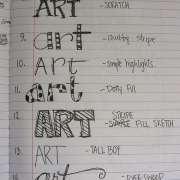 ART - SCRATCH
9. art - chubby stripe.
10. Art - simple highlights.
11. art - Dotty Fill
12. ART STRIPE FILL SKETCH
13. ART - TALL BOY
art